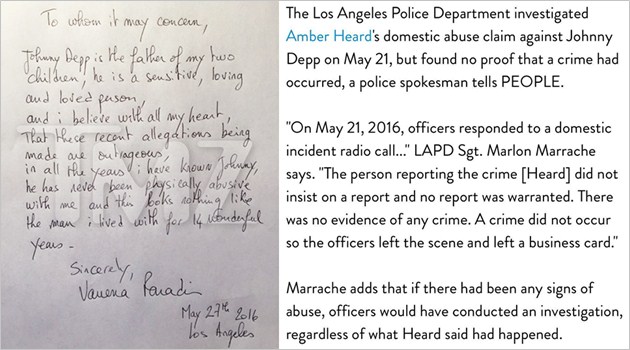 To whom it may concern,
Johnny Depp is the father of my two
children, he is a sensitive, loving
and loved person,
and i believe with all my heart,
That these recent allegations being
made are outrageous,
in all the years i have known Johnny,
he has never been physically abusive
with me and this looks nothing like
the man i lived with for 14 wonderful
years -
Sincerely,
Vanessa Paradis
May 27th 2016
Los Angeles
TMZ
The Los Angeles Police Department investigated
Amber Heard's domestic abuse claim against Johnny
Depp on May 21, but found no proof that a crime had
occurred, a police spokesman tells PEOPLE.
"On May 21, 2016, officers responded to a domestic
incident radio call..." LAPD Sgt. Marlon Marrache
says. "The person reporting the crime [Heard] did not
insist on a report and no report was warranted. There
was no evidence of any crime. A crime did not occur
so the officers left the scene and left a business card."
Marrache adds that if there had been any signs of
abuse, officers would have conducted an investigation,
regardless of what Heard said had happened.